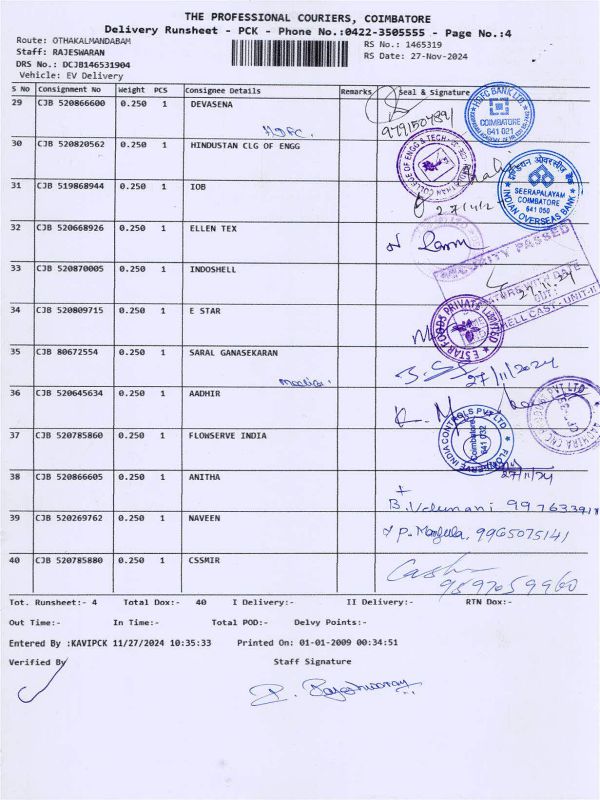 THE PROFESSIONAL COURIERS, COIMBATORE
Delivery Runsheet - PCK - Phone No.:0422-3505555 - Page No.:4
Route: OTHAKALMANDABAM
RS No.: 1465319
Staff: RAJESWARAN
RS Date: 27-Nov-2024
DRS No.: DCJB146531904
Vehicle: EV Delivery
S No Consignment No Weight PCS Consignee Details Remarks Seal & Signature
29 CJB 520866600 0.250 1 DEVASENA
HDFC.
HDFC BANK LTD. COIMBATORE 641 021
30 CJB 520820562 0.250 1 HINDUSTAN CLG OF ENGG
COLLEGE OF ENGG & TECH
31 CJB 519868944 0.250 1 IOB
इण्डियन ओवरसीज़ बैंक
SEERAPALAYAM
COIMBATORE
641 050
INDIAN OVERSEAS BANK
32 CJB 520668926 0.250 1 ELLEN TEX
33 CJB 520870005 0.250 1 INDOSHELL
SECURITY PASSED
SHELL CAST-UNIT-II
34 CJB 520809715 0.250 1 E STAR
E STAR FOODS PRIVATE LIMITED
35 CJB 80672554 0.250 1 SARAL GANASEKARAN
27/11/2024
36 CJB 520645634 0.250 1 AADHIR
PVT LTD
37 CJB 520785860 0.250 1 FLOWSERVE INDIA
FLOWSERVE INDIA CONTROLS PVT. LTD
Coimbatore
641 032
27/11/24
38 CJB 520866605 0.250 1 ANITHA
B. Velumani
39 CJB 520269762 0.250 1 NAVEEN
9965075141
40 CJB 520785880 0.250 1 CSSMIR
9597059960
Tot. Runsheet:- 4 Total Dox:- 40 I Delivery:- II Delivery:- RTN Dox:-
Out Time:- In Time:- Total POD:- Delvy Points:-
Entered By :KAVIPCK 11/27/2024 10:35:33 Printed On: 01-01-2009 00:34:51
Verified By Staff Signature